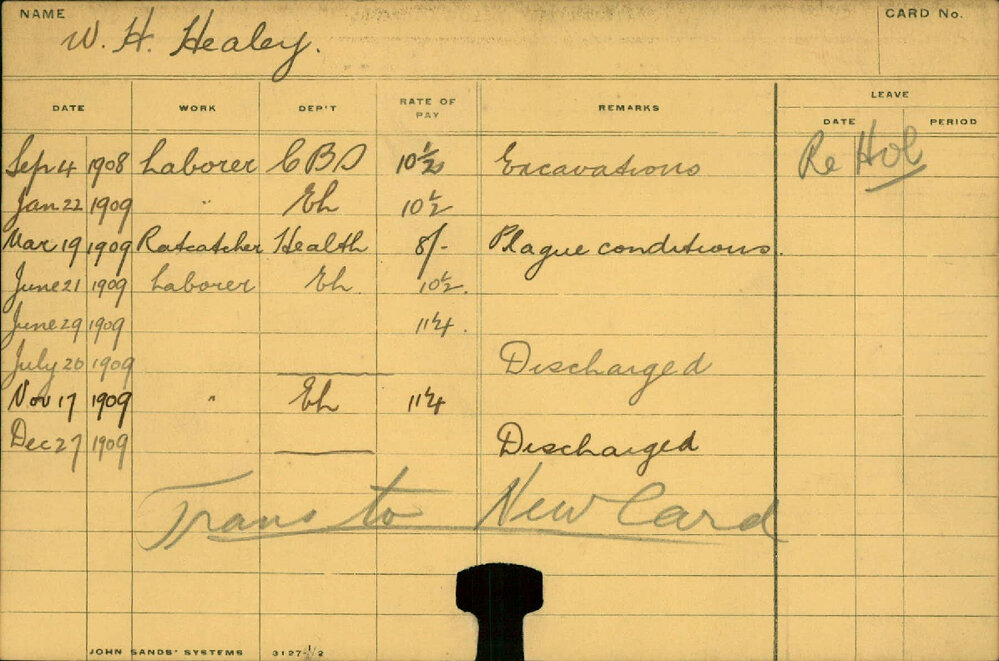 NAME CARD No.
W. H. Healey.
DATE WORK DEP'T RATE OF PAY REMARKS LEAVE
DATE PERIOD
Sep 4 1908 Laborer CBS 10½ Excavations Re Hol
Jan 22 1909 " Eh 10½
Mar 19 1909 Ratcatcher Health 8/- Plague conditions.
June 21 1909 Laborer Eh 10½.
June 29 1909 11¼.
July 20 1909 Discharged
Nov 17 1909 " Eh 11¼
Dec 27 1909 Discharged
Trans to New Card
JOHN SANDS' SYSTEMS 3127-1/2